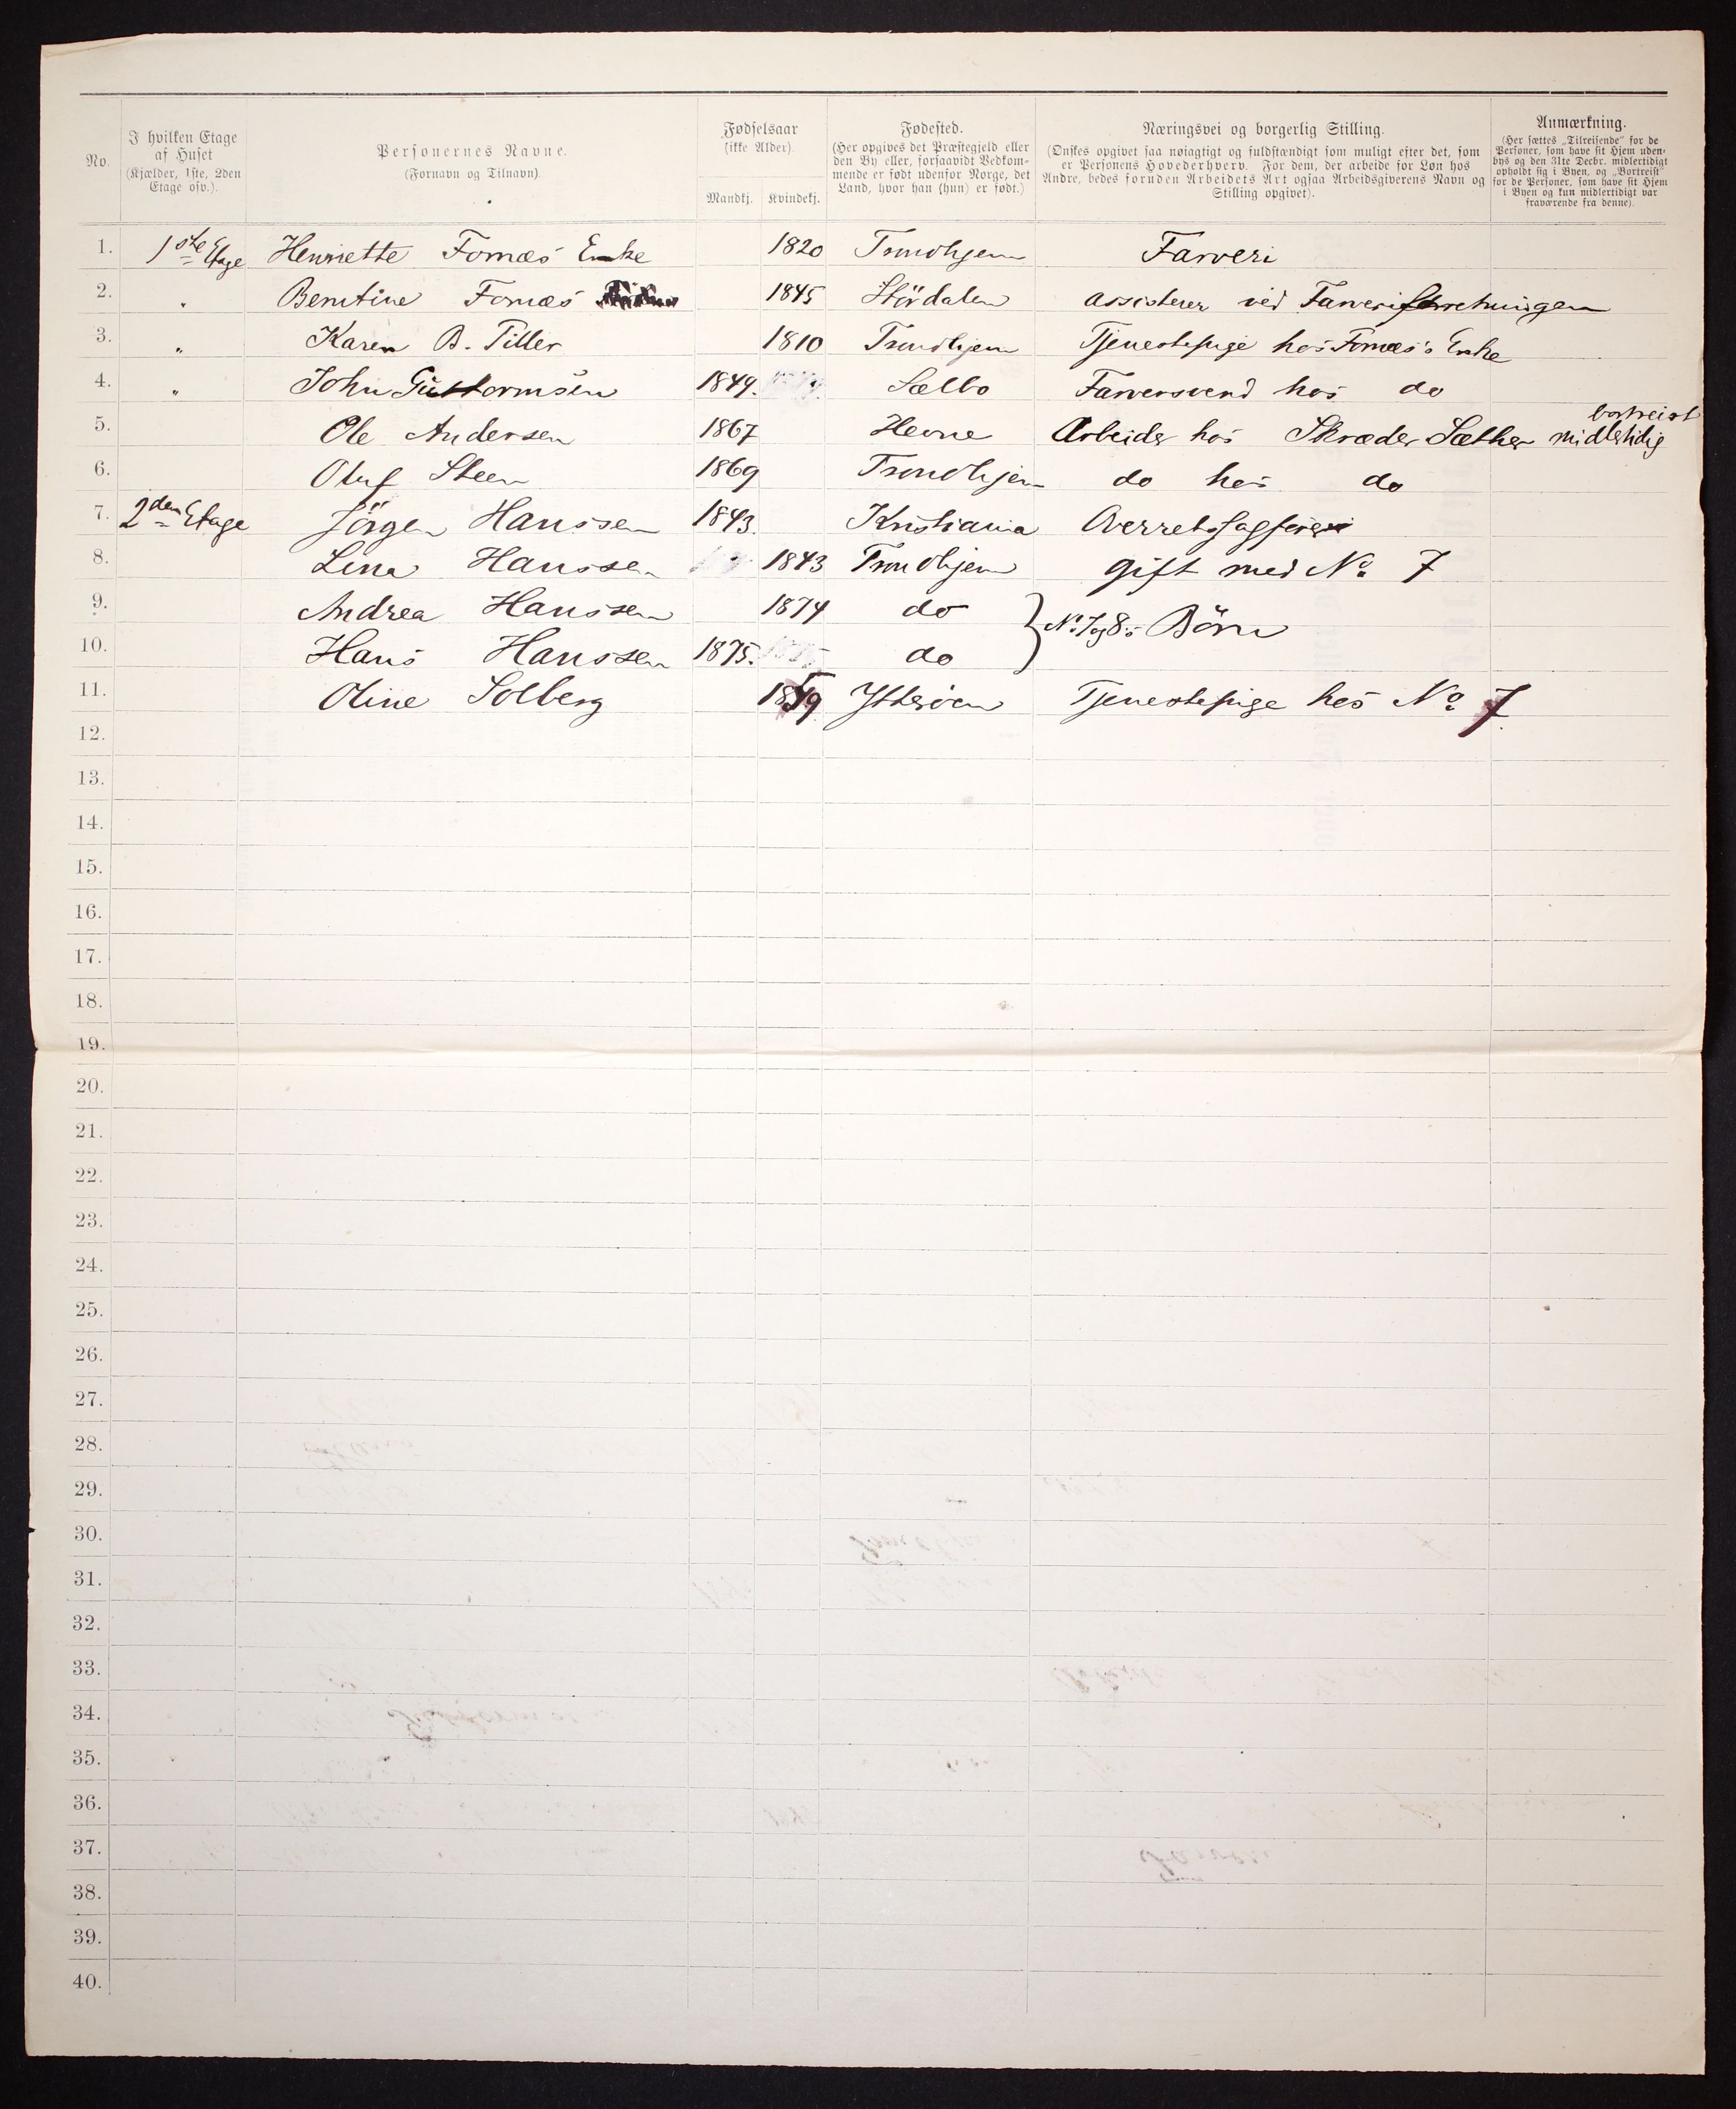 No.
I hvilken Etage
af Huset
(Kjælder, 1ste, 2den
Etage osv.).
Personernes Navne.
(Fornavn og Tilnavn)
Fødselsaar
(ikke Alder).
Mandkj. Kvindekj.
Fødested.
(Her opgives det Præstegjeld eller
den By eller, forsaavidt Vedkom-
mende er født udenfor Norge, det
Land, hvor han (hun) er født.)
Næringsvei og borgerlig Stilling.
(Ønskes opgivet saa nøiagtigt og fuldstændigt som muligt efter det, som
er Personens Hovederhverv. For dem, der arbeide for Løn hos
Andre, bedes foruden Arbeidets Art ogsaa Arbeidsgiverens Navn og
Stilling opgivet).
Anmærkning.
(Her sættes „Tilreisende" for de
Personer, som have sit Hjem uden-
bys og den 31te Decbr. midlertidigt
opholdt sig i Byen, og „Bortreist"
for de Personer, som have sit Hjem
i Byen og kun midlertidigt var
fraværende fra denne).
1. 1ste Etage Henriette Fornæs Enke 1820 Trondhjem Farveri
2. " Berntine Fornæs 1845 Stördalen assisterer ved Farveriforretningen
3. " Karen B. Tiller 1810 Trondhjem Tjenestepige hos Fornæs's Enke
4. " John Guttormsen 1849. Sælbo Farversvend hos do
5. Ole Andersen 1867 Hevne Arbeider hos Skræder Sæther bortreist
midlertidig
6. Oluf Steen 1869 Trondhjem do hos do
7. 2den Etage Jörgen Hanssen 1843. Kristiania Overretssagförer
8. Lina Hanssen 1843 Trondhjem gift med No 7
9. Andrea Hanssen 1874 do } No 7 og 8's Börn
10. Hans Hanssen 1875. do
11. Oline Solberg 1859 Ytteröen Tjenestepige hos No 7
12.
13.
14.
15.
16.
17.
18.
19.
20.
21.
22.
23.
24.
25.
26.
27.
28.
29.
30.
31.
32.
33.
34.
35.
36.
37.
38.
39.
40.